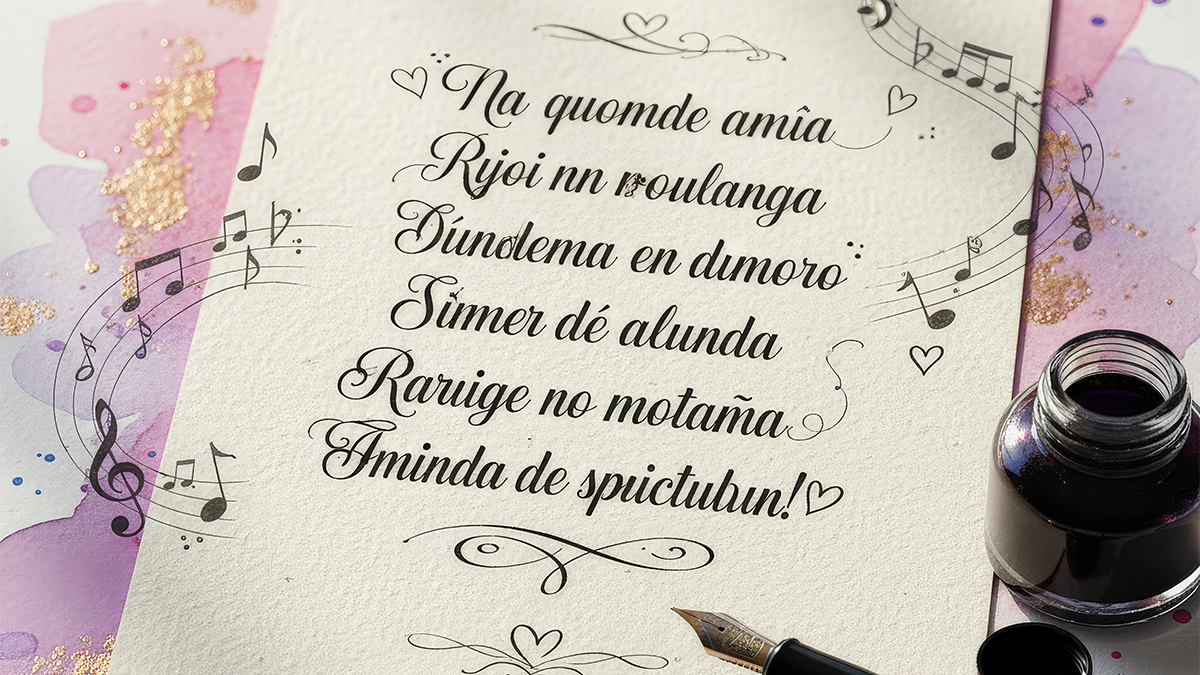 Na quomde amîa
Ryoi nn roulanga
Dúndema en dımoro
Súmer dé alunda
Raruige no motam̃a
Aminda de spuctuhun!